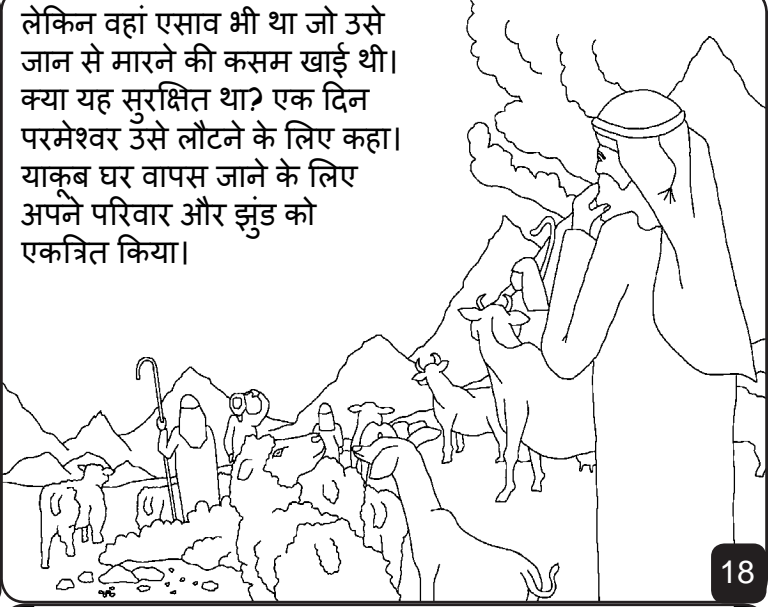 लेकिन वहां एसाव भी था जो उसे
जान से मारने की कसम खाई थी।
क्या यह सुरक्षित था? एक दिन
परमेश्वर उसे लौटने के लिए कहा।
याकूब घर वापस जाने के लिए
अपने परिवार और झुंड को
एकत्रित किया।
18